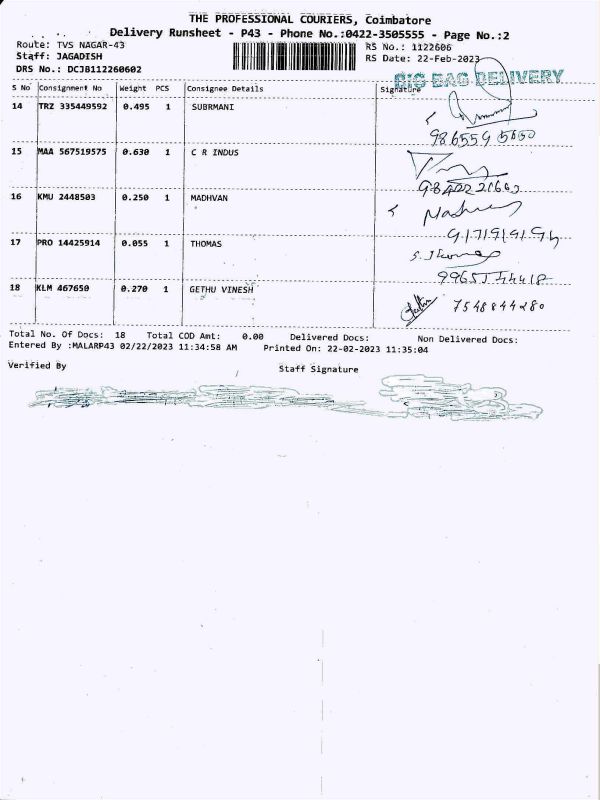 THE PROFESSIONAL COURIERS, Coimbatore
Delivery Runsheet - P43 - Phone No.:0422-3505555 - Page No.:2
Route: TVS NAGAR-43 RS No.: 1122606
Staff: JAGADISH RS Date: 22-Feb-2023
DRS No.: DCJB112260602 BIG BAG DELIVERY
S No Consignment No Weight PCS Consignee Details Signature
14 TRZ 335449592 0.495 1 SUBRMANI
15 MAA 567519575 0.630 1 C R INDUS
16 KMU 2448503 0.250 1 MADHVAN
17 PRO 14425914 0.055 1 THOMAS
S. Thomas
18 KLM 467650 0.270 1 GETHU VINESH
7548844280
Total No. Of Docs: 18 Total COD Amt: 0.00 Delivered Docs: Non Delivered Docs:
Entered By :MALARP43 02/22/2023 11:34:58 AM Printed On: 22-02-2023 11:35:04
Verified By Staff Signature